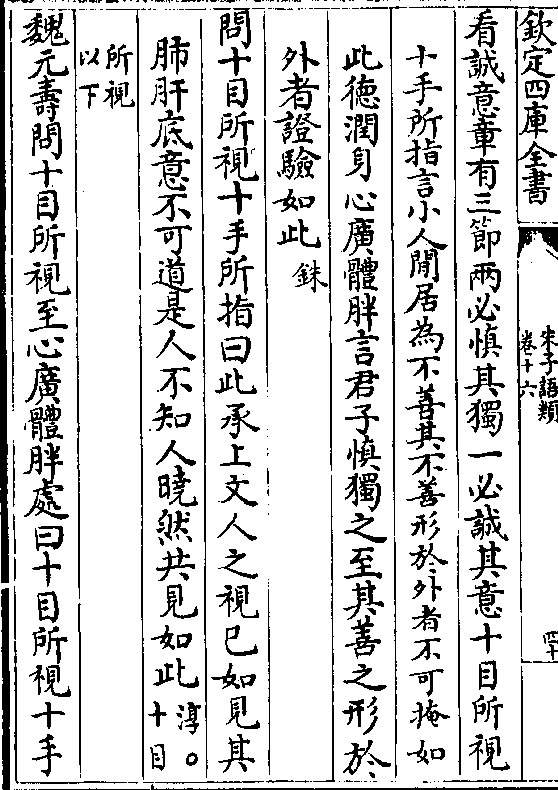 欽定四庫全書
朱子語類
卷十六
四十
看誠意章有三節兩必慎其獨一必誠其意十目所視
十手所指言小人閒居為不善其不善形於外者不可掩如
此德潤身心廣體胖言君子慎獨之至其善之形於
外者證驗如此銖
問十目所視十手所指曰此承上文人之視已如見其
肺肝底意不可道是人不知人曉然共見如此淳。十目
所視以下
魏元壽問十目所視至心廣體胖處曰十目所視十手